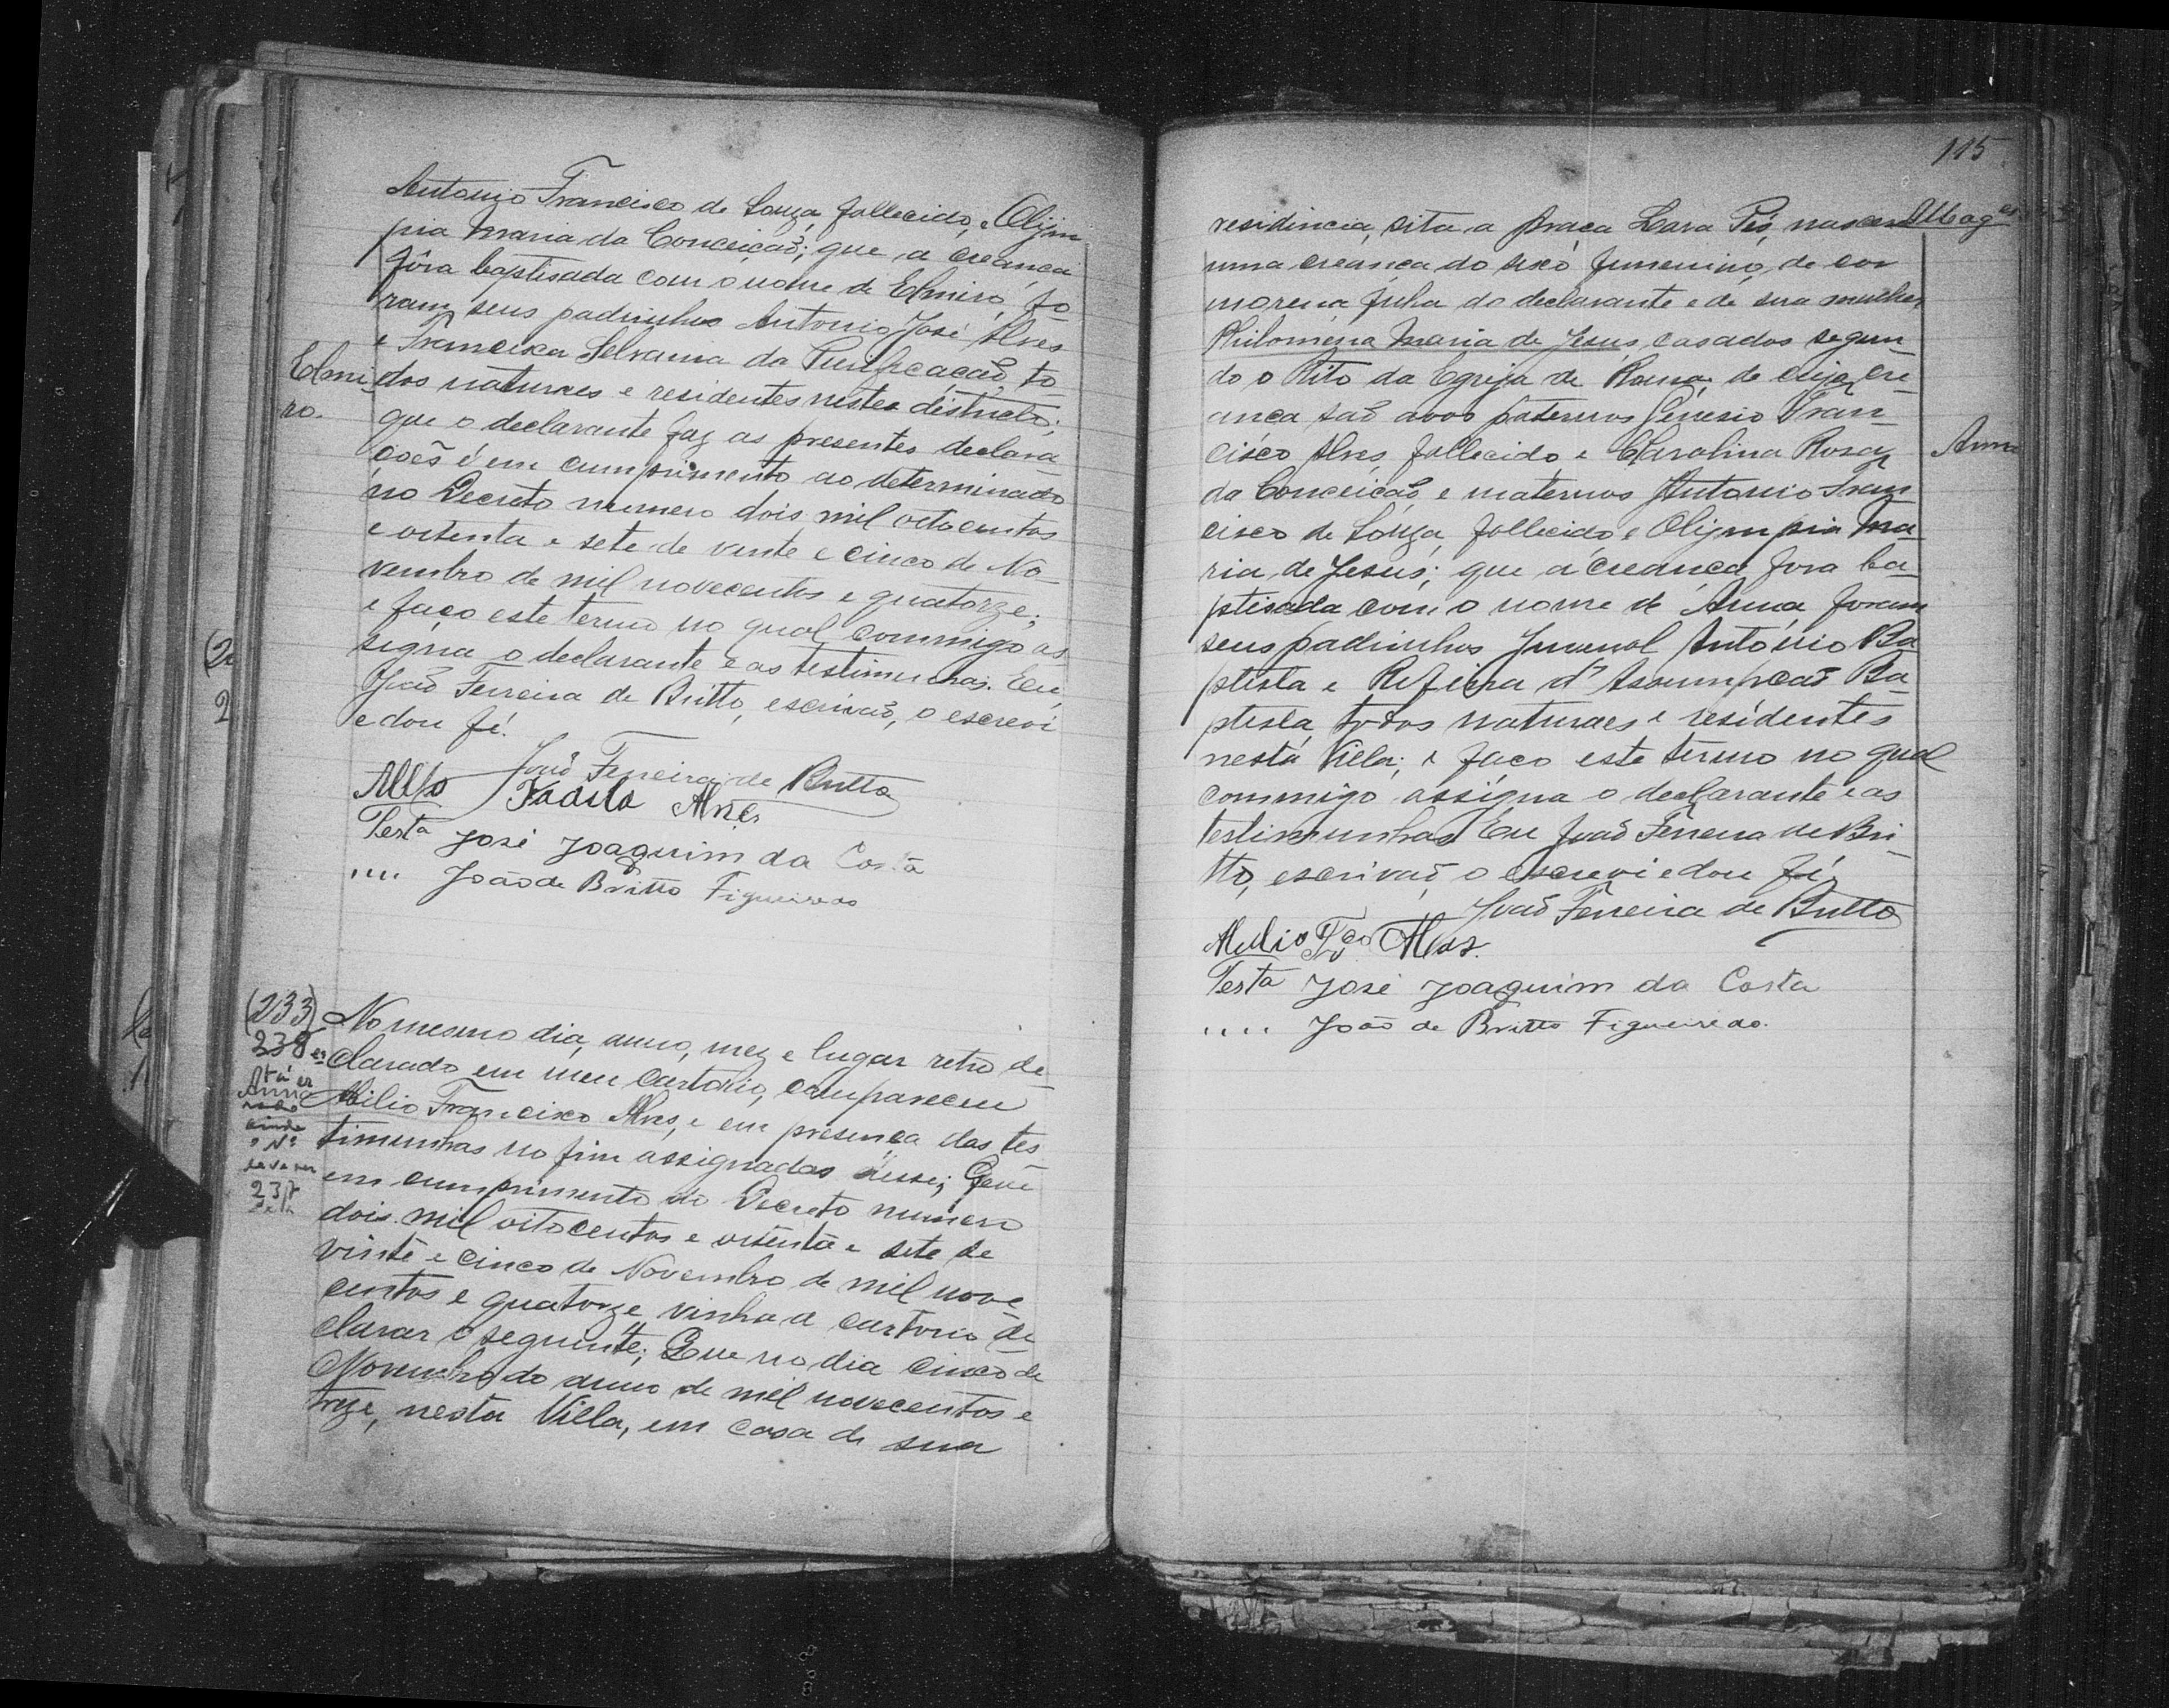 Antonio Francisco de Souza, fallecido, e Olijm
pia Maria da Conceição; que a creança
fôra baptisada com o nome de Elmiro, fo
ram seus padrinhos Antonio José Alves
e Francisca Selvania da Purificação, to
Elmi
ro.
dos naturaes e residentes nestes districto;
que o declarante faz as presentes declara
coẽs é em cumprimento ao determinado
no Decreto numero dois mil oitocentos
e oitenta e sete de vinte e cinco de No
vembro de mil novecentos e quatorze;
e faço este termo no qual commigo as
signa o declarante e as testimunhas. Eu,
João Ferreira de Britto, escrivaõ, o escrevi
e dou fé.
João Ferreira de Britto
Alves
Testa José Joaquim da Costa
"" João de Britto Figueiredo
(233)
238
Anna
ainda
o No
237
No mesmo dia, anno, mez e lugar retro de
clarado em meu Cartorio, compareceu
Abilio Francisco Alves, e em presença das tes
timunhas no fim assignadas disse; Que
em cumprimento do Decreto numero
dois mil oitocentos e oitenta e sete de
vinte e cinco de Novembro de mil nove
centos e quatorze, vinha a cartorio de
clarar o seguinte; Que no dia cinco de
Novembro do anno de mil novecentos e
treze, nesta Villa, em casa de sua
115
residencia, sita a praça Lara Pió, nasceu
uma creança do sexo femenino, de cor
morena, filha do declarante e de sua mulher
Philomena Maria de Jesus, casados segun
do o Rito da Egreja de Roma; de cuja cre
ança saõ avos paternos Genesio Fran
cisco Alves, fallecido e Carolina Rosa
Anna
da Conceicaõ, e maternos Antonio Fran
cisco de Souza, fallecido e Olijmpia Ma
ria de Jesus; que a creança fora ba
ptisada com o nome de Anna, foram
seus padrinhos Juvenal Antonio Ba
ptista e d'Assumpcaõ Ba
ptista, todos naturaes e residentes
nesta Villa; e faço este termo no qual
commigo assigna o declarante e as
testimunhas Eu João Ferreira de Bri
tto, escrivaõ o escrevi e dou fé.
João Ferreira de Britto
Abilio Fco Alves.
Testa José Joaquim da Costa
"" João de Britto Figueiredo.